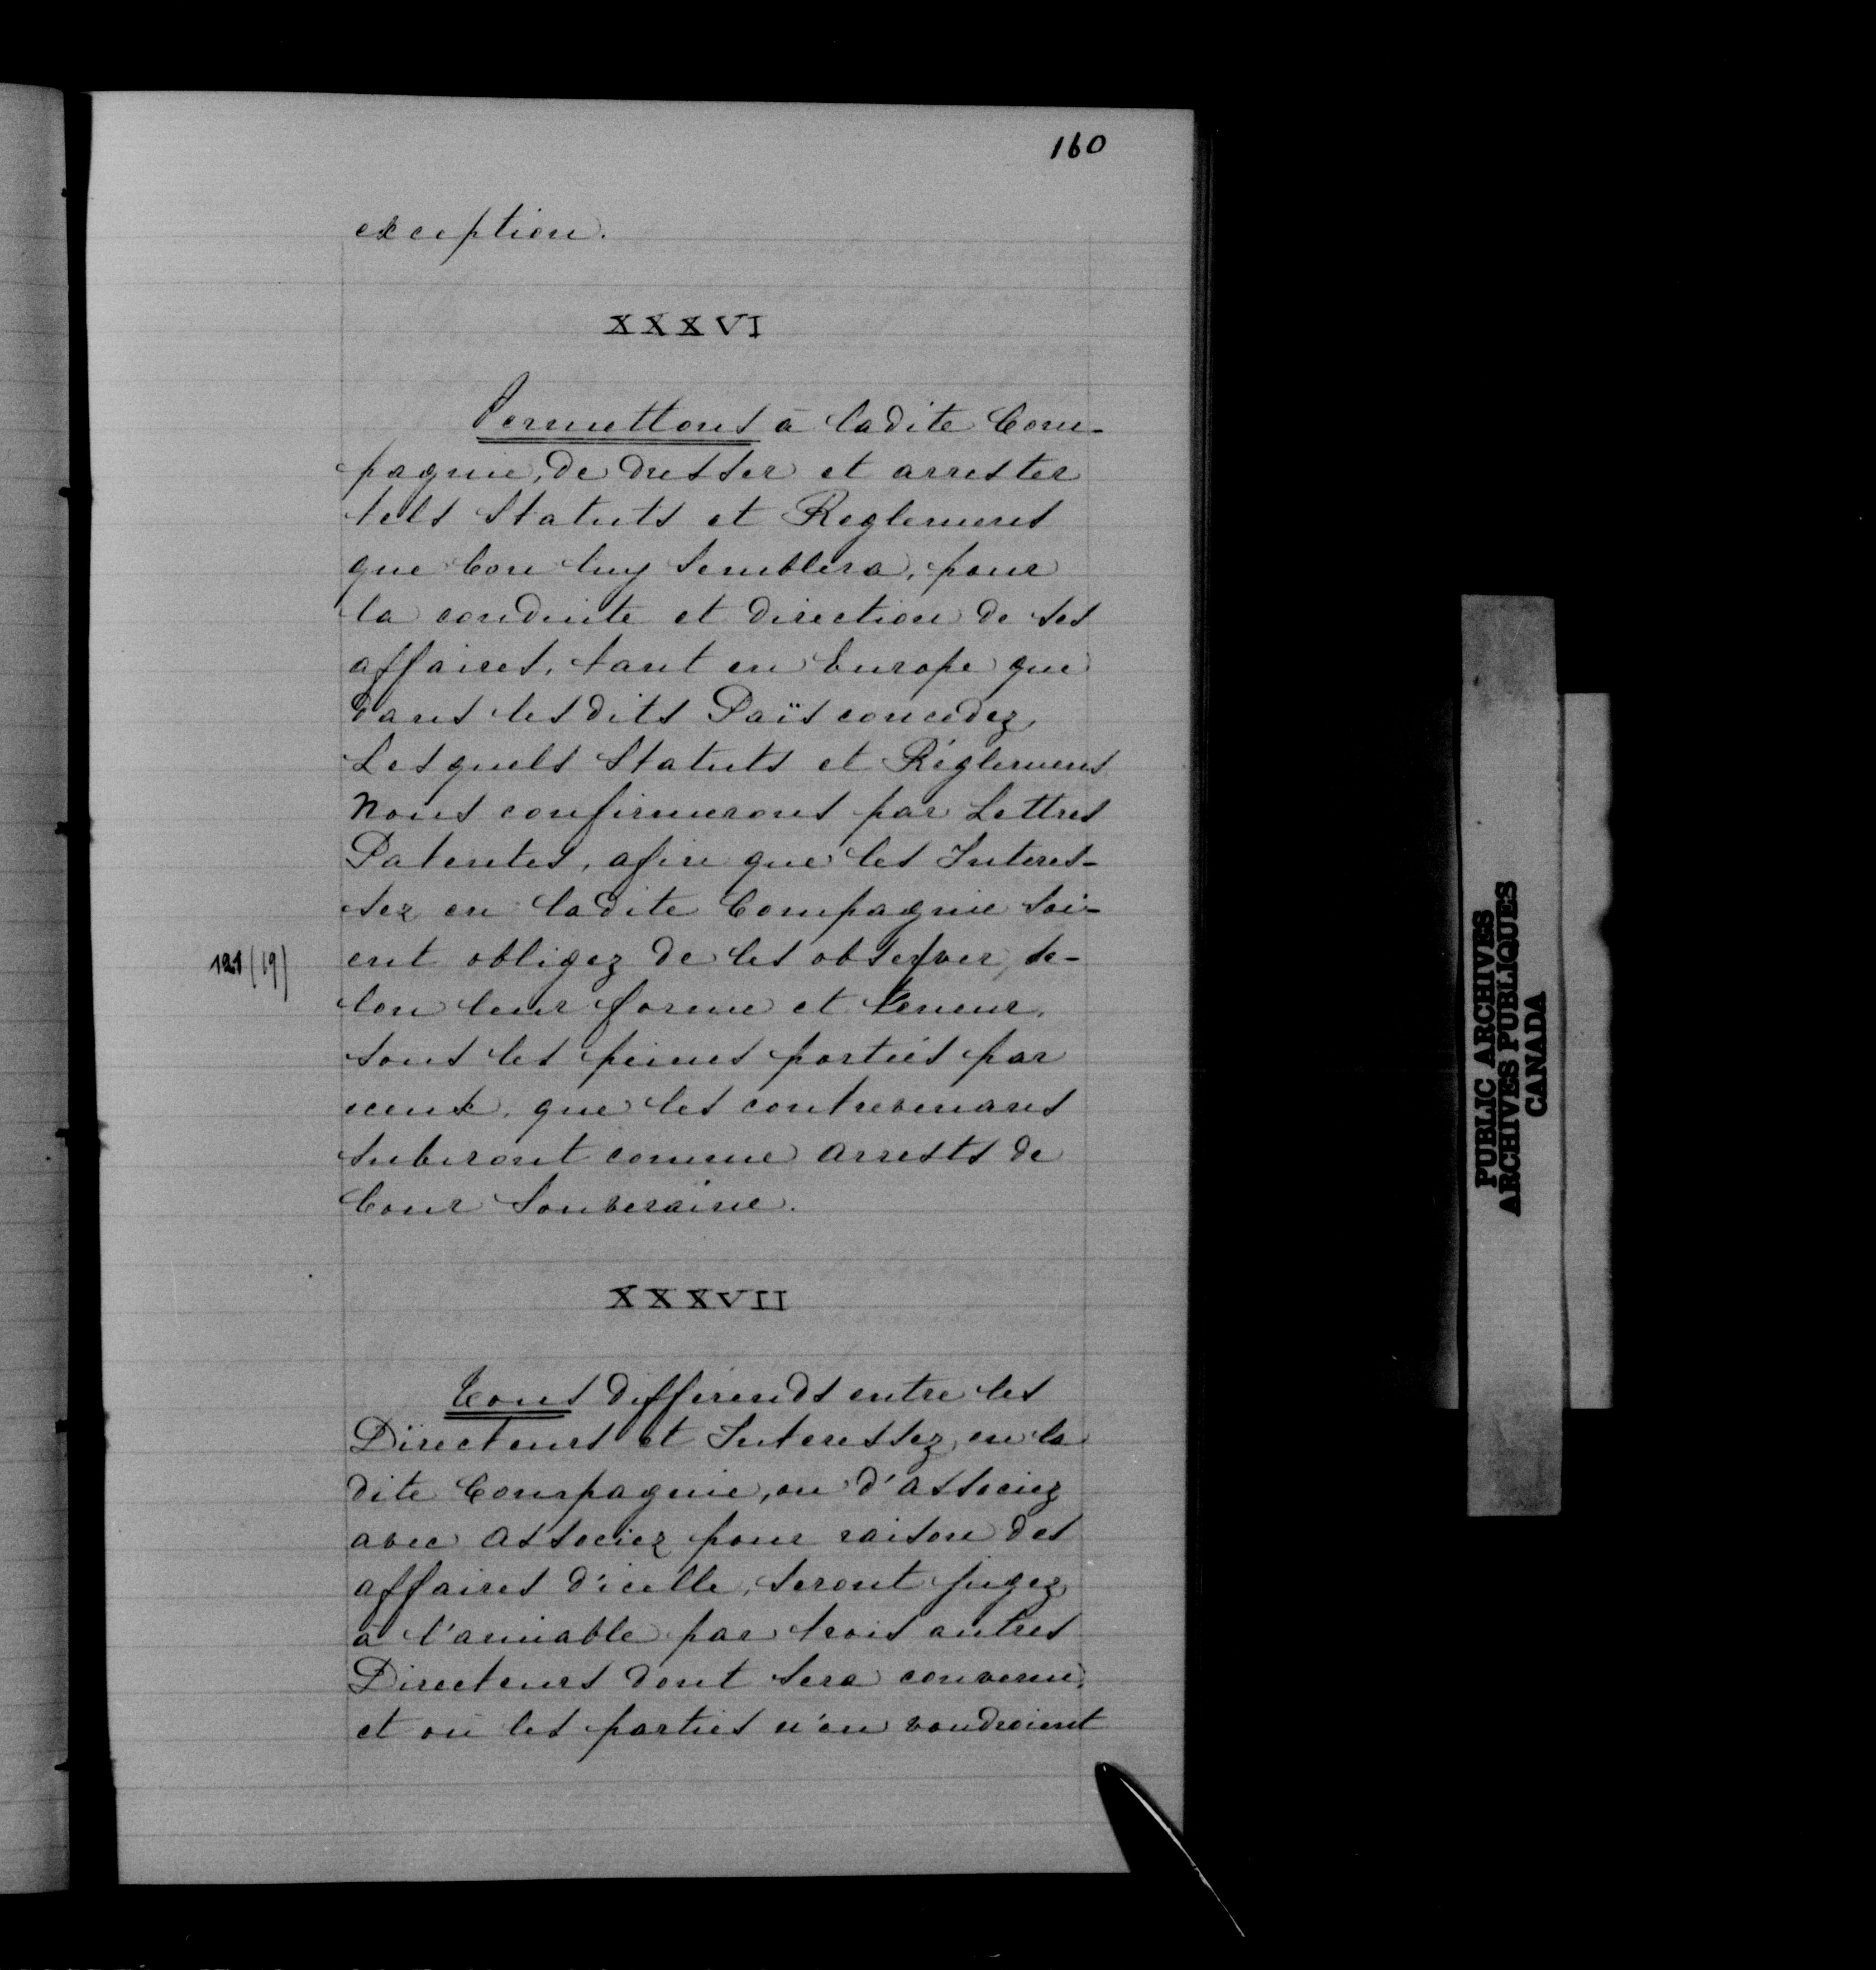 160
exception.
XXXVI
Permettons à ladite Com-
pagnie, de dresser et arrester
tels Statuts et Reglemens
que bon luy semblera, pour
la conduite et direction de ses
affaires, tant en Europe que
dans lesdits Païs concedez,
Lesquels Statuts et Réglemens
Nous confirmerons par Lettres
Patentes, afin que les Interes-
sez en ladite Compagnie soi-
121 (19)
ent obligez de les observer, se-
lon leur forme et teneur,
sous les peines portées par
iceux, que les contrevenans
subiront comme arrests de
Cour Souveraine.
XXXVII
Tous differends entre les
Directeurs et Interessez en la
dite Compagnie, ou d'associez
avec associez pour raison des
affaires d'icelle, seront jugez
à l'amiable par trois autres
Directeurs dont sera convenu,
et où les parties n'en voudroient
PUBLIC ARCHIVES
ARCHIVES PUBLIQUES
CANADA